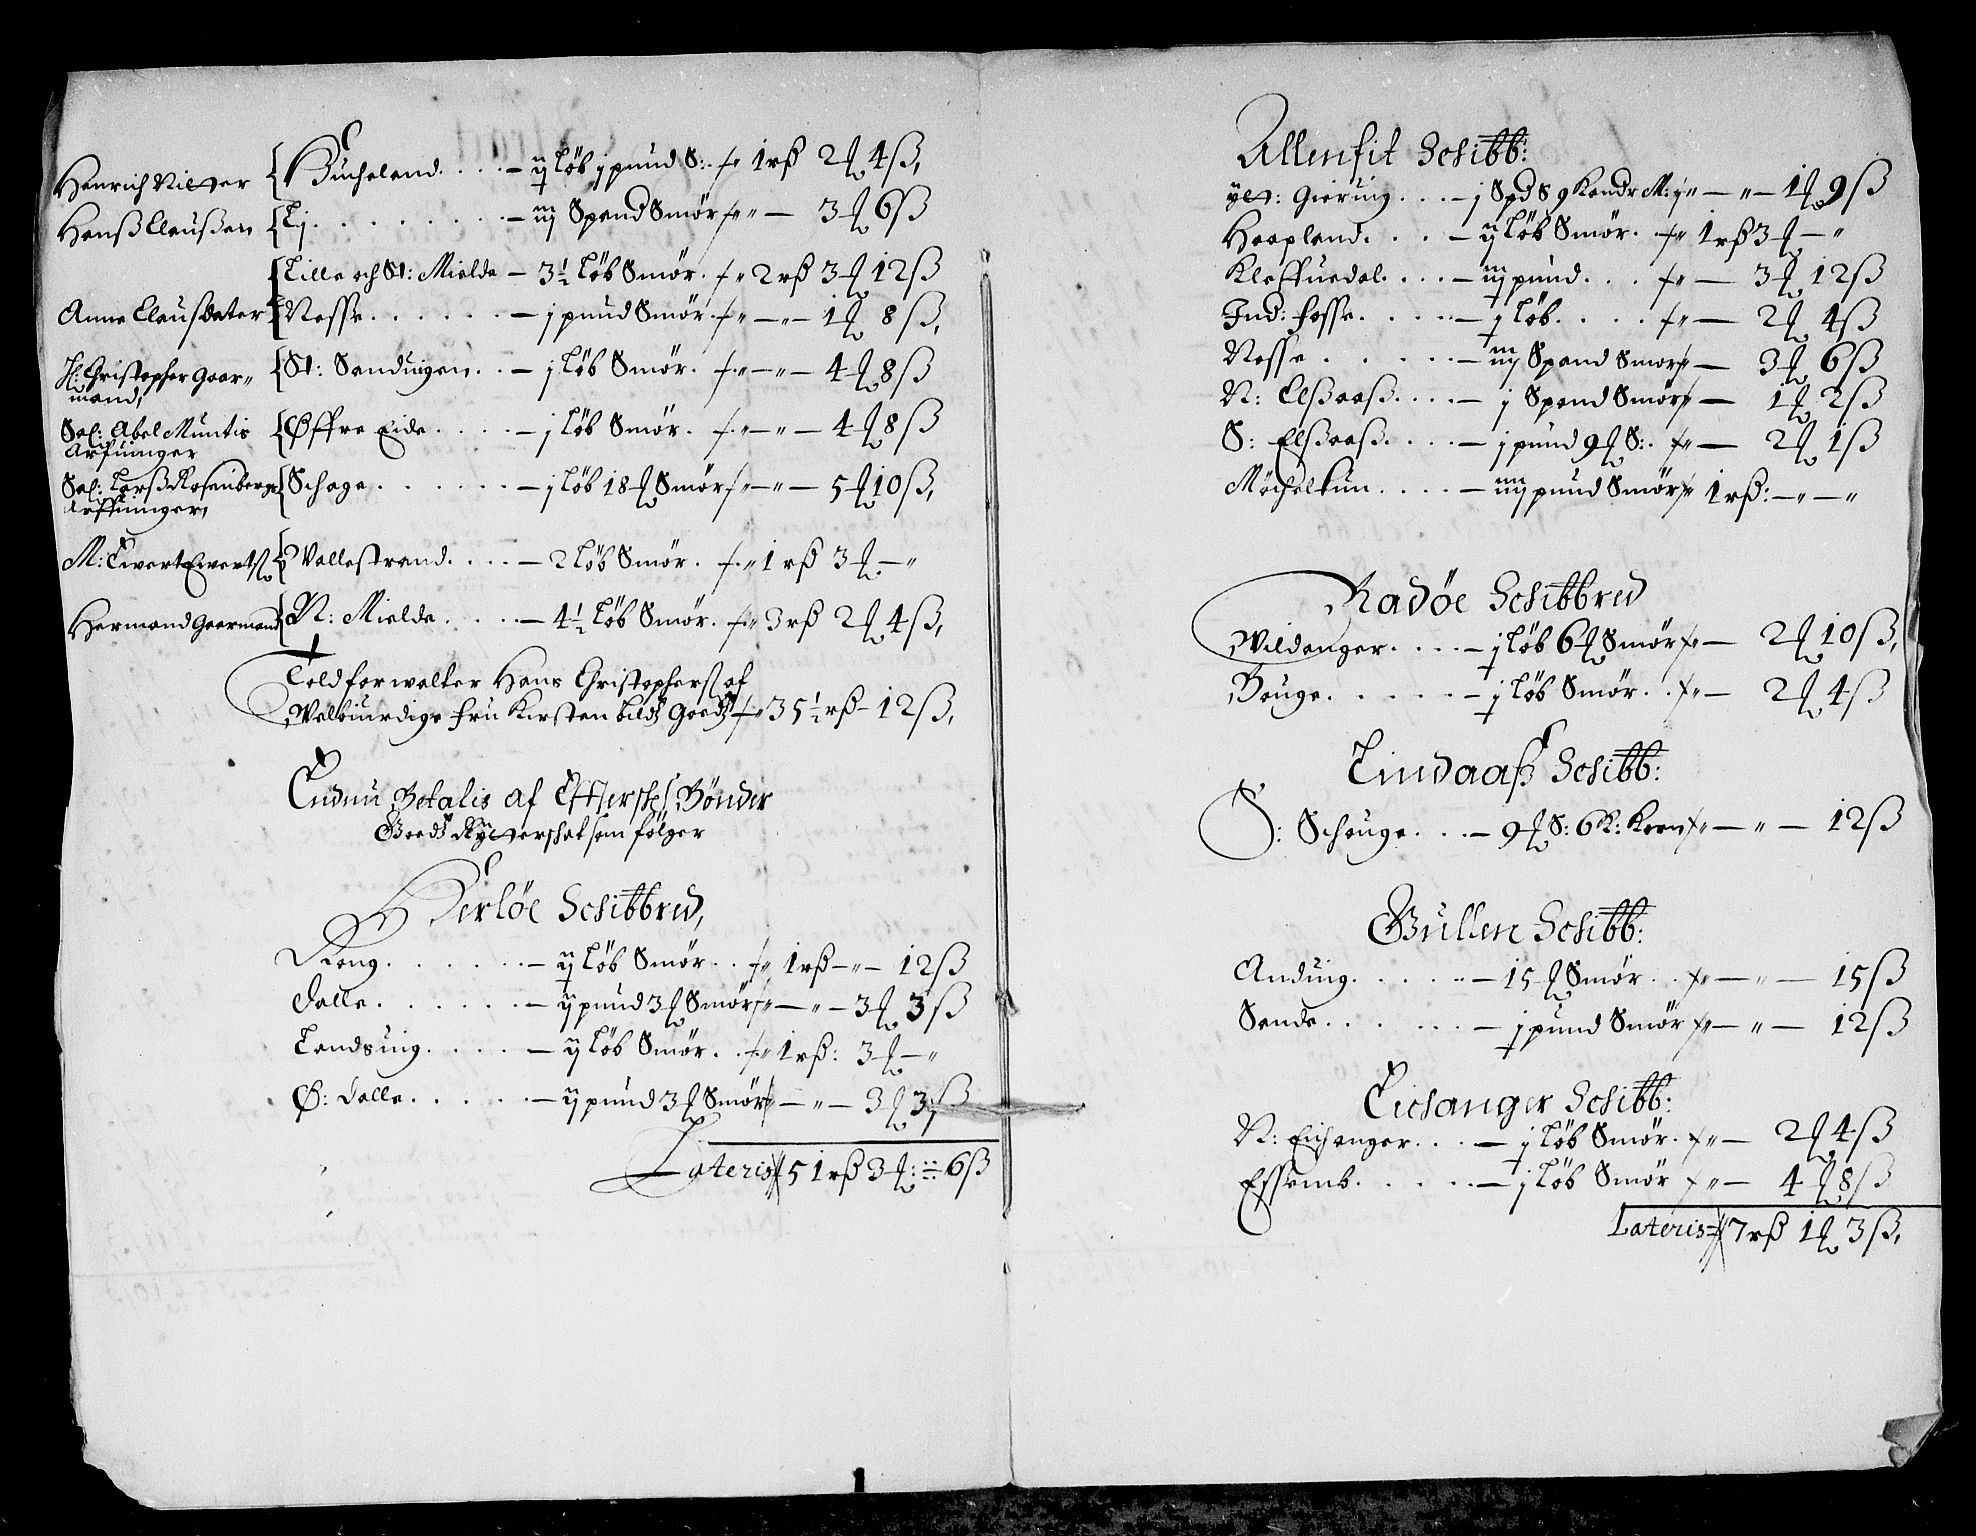 Henrich Nilßer { Bucheland. . . . — ij löb j pund S: . ſ„ 1 rß 2 ℔ 4 ß,
Henß Claußen { Ej. . . . . . . — iij Spand Smör ſ„ „ — 3 ℔ 6 ß
{ Lille och St: Mielde — 3½ Löb Smör. ſ„ 2 rß 3 ℔ 12 ß
Anne Clausdater { Nesse. . . . . . — j pund Smör ſ„ — „ — 1 ℔ 8 ß,
H: Christopher Goor„
mand,
{ St: Sanduigen. . — j löb Smör. ſ„ — „ — 4 ℔ 8 ß
Sal: Abel Muntis
Arfuinger
{ Øffre Eide. . . . — j löb Smör. ſ„ — „ — 4 ℔ 8 ß
Sal: Larß Rosenbergs
Arffuinger,
{ Schage. . . . . . — j löb 18 ℔ Smör ſ„ — „ — 5 ℔ 10 ß,
M: Ewert Ewertß { Vallestrand. . . . — 2 löb Smör. ſ„ 1 rß 3 ℔ — „
Hermand Goormand { N: Mielde. . . . — 4½ Löb Smör. ſ„ 3 rß 2 ℔ 4 ß,
Toldforwalter Hans Christophersß af
Welbiurdige fru Kirsten bildß Goedß ſ„ 35½ rß — 12 ß,
Endnu Betalis af Effterschß Bönder
Goedß Rytterschat som fölger
Herlöe Schibbred,
Rong. . . . . . — ij Löb Smör. . ſ„ 1 rß — „ — 12 ß
Dalle. . . . . . — ij pund 3 ℔ Smör ſ„ — „ — 3 ℔ 3 ß
Landsuig. . . . . — ij Löb Smör. . ſ„ 1 rß: 3 ℔ — „
Ø: Dalle. . . . . — ij pund 3 ℔ Smör ſ„ — „ — 3 ℔ 3 ß
Lateris 51 rß 3 ℔ : 6 ß
Allenfit Schibb:
Gieruig. . . — j Spd S 9 Kandr M: j „ — „ — 1 ℔ 9 ß
Haapland. . . . — ij Löb Smör. ſ„ 1 rß 3 ℔ — „
Kleffuedal. . . . — iij pund. . . ſ„ — 3 ℔ 12 ß
Ind: fosse. . . . . — j löb. . . . ſ„ — 2 ℔ 4 ß
Nesse. . . . . . — iij Spand Smör ſ„ — 3 ℔ 6 ß
N: Elßaaß. . . . — j Spand Smör ſ„ — 1 ℔ 2 ß
S: Elßaaß. . . . — j pund 9 ℔ S: . ſ„ — 2 ℔ 1 ß
Möcheltun. . . . — iiij pund Smör ſ„ 1 rß: — „ — „
Radöe Schibbred
Wildanger. . . . — j löb 6 ℔ Smör ſ„ — 2 ℔ 10 ß,
Bouge. . . . . . — j löb Smör. . ſ„ — 2 ℔ 4 ß
Lindaaß Schibb:
S: Schouge. . . — 9 ℔ S: 6 K: Korn ſ„ — „ — 12 ß
Gullen Schibb:
Anduig. . . . . . — 15 ℔ Smör. . ſ„ — „ — 15 ß
Sande. . . . . . — j pund Smör ſ„ — „ — 12 ß
Eichanger Schibb:
N: Eichanger. . . — j löb Smör. ſ„ — 2 ℔ 4 ß
Essemb. . . . . . — j löb Smör ſ„ — 4 ℔ 8 ß
Lateris 7 rß 1 ℔ 3 ß,